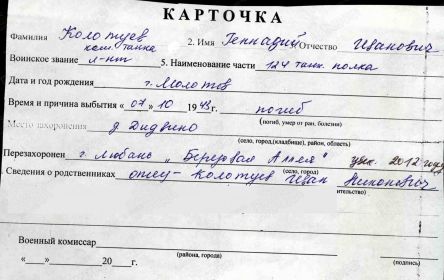 КАРТОЧКА
Фамилия Колотуев 2. Имя Геннадий Отчество Иванович
ком. танка
Воинское звание л-нт 5. Наименование части 124 танк. полка
Дата и год рождения г. Молотов
Время и причина выбытия «07» 10 1943 г. погиб
(погиб, умер от ран, болезни)
Место захоронения д. Дидвино
(село, город,(кладбище), район, область)
Перезахоронен г. Любань „Березовая Аллея" 2012 году
(село, город)
Сведения о родственниках отец - Колотуев Иван Никонович
ительство)
Военный комиссар
(района, города) (подпись)
«___»_______20___г.